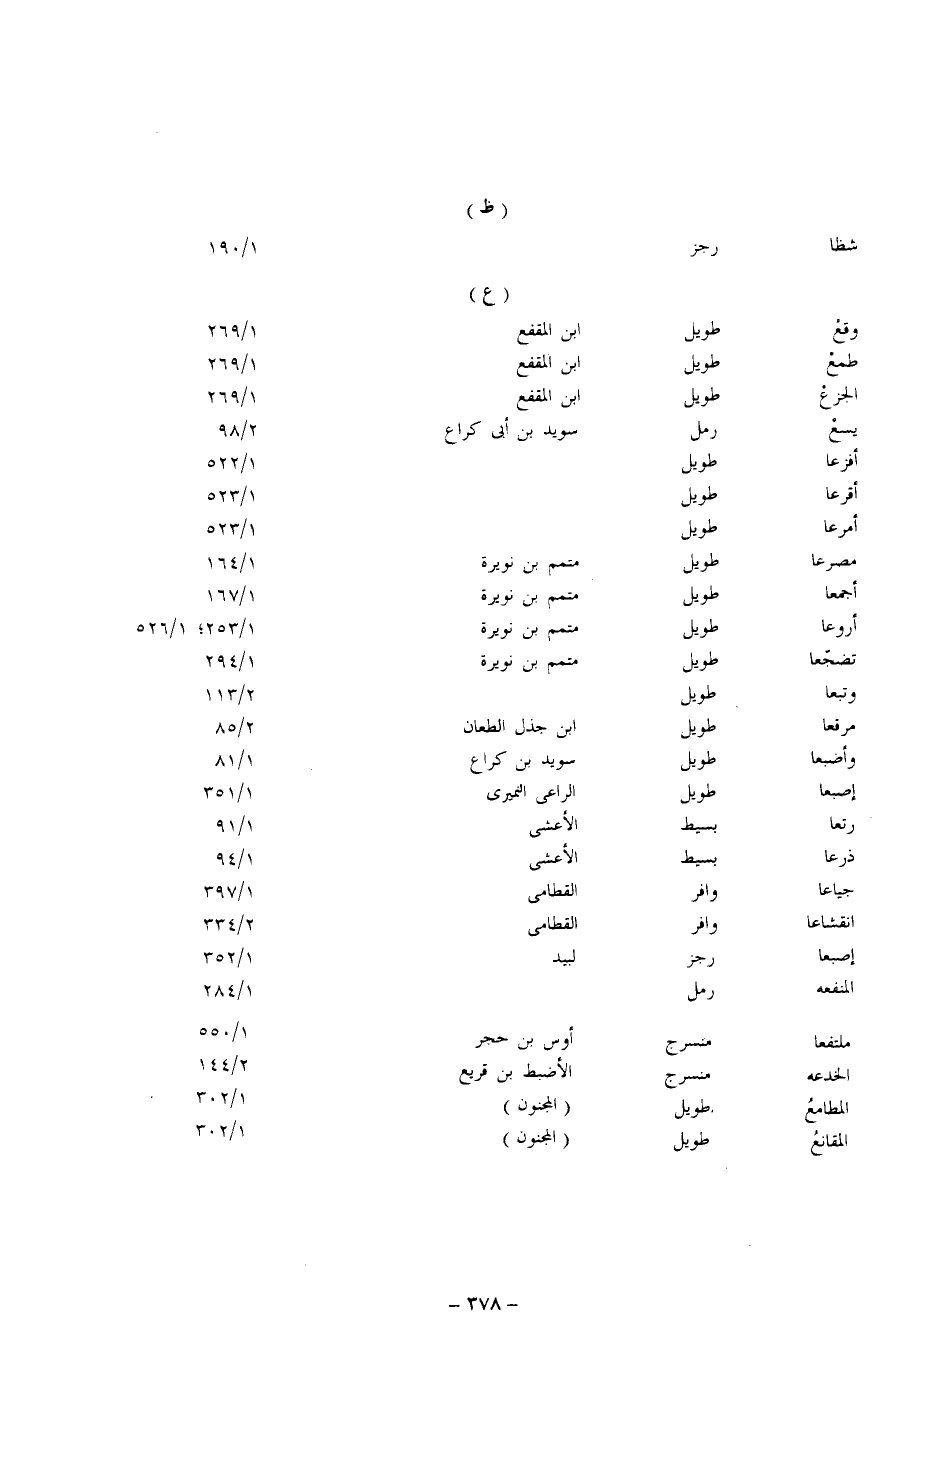 ( ظ )
شظا رجز ١٩٠/١
( ع )
وقعْ طويل ابن المقفع ٢٦٩/١
طمعْ طويل ابن المقفع ٢٦٩/١
الجزعْ طويل ابن المقفع ٢٦٩/١
يسعْ رمل سويد بن أبى كراع ٩٨/٢
أفزعا طويل ٥٢٢/١
أقرعا طويل ٥٢٣/١
أمرعا طويل ٥٢٣/١
مصرعا طويل متمم بن نويرة ١٦٤/١
أجمعا طويل متمم بن نويرة ١٦٧/١
أروعا طويل متمم بن نويرة ٢٥٣/١؛ ٥٢٦/١
تضجّعا طويل متمم بن نويرة ٢٩٤/١
وتبعا طويل ١١٣/٢
مرقعا طويل ابن جذل الطعان ٨٥/٢
وأضبعا طويل سويد بن كراع ٨١/١
إصبعا طويل الراعى النميرى ٣٥١/١
رتعا بسيط الأعشى ٩١/١
ذرعا بسيط الأعشى ٩٤/١
جياعا وافر القطامى ٣٩٧/١
انقشاعا وافر القطامى ٣٣٤/٢
إصبعا رجز لبيد ٣٥٢/١
المنفعه رمل ٢٨٤/١
ملتفعا منسرج أوس بن حجر ٥٥٠/١
الخدعه منسرج الأضبط بن قريع ١٤٤/٢
المطامعُ طويل ( المجنون ) ٣٠٢/١
المقانعُ طويل ( المجنون ) ٣٠٢/١
– ٣٧٨ –